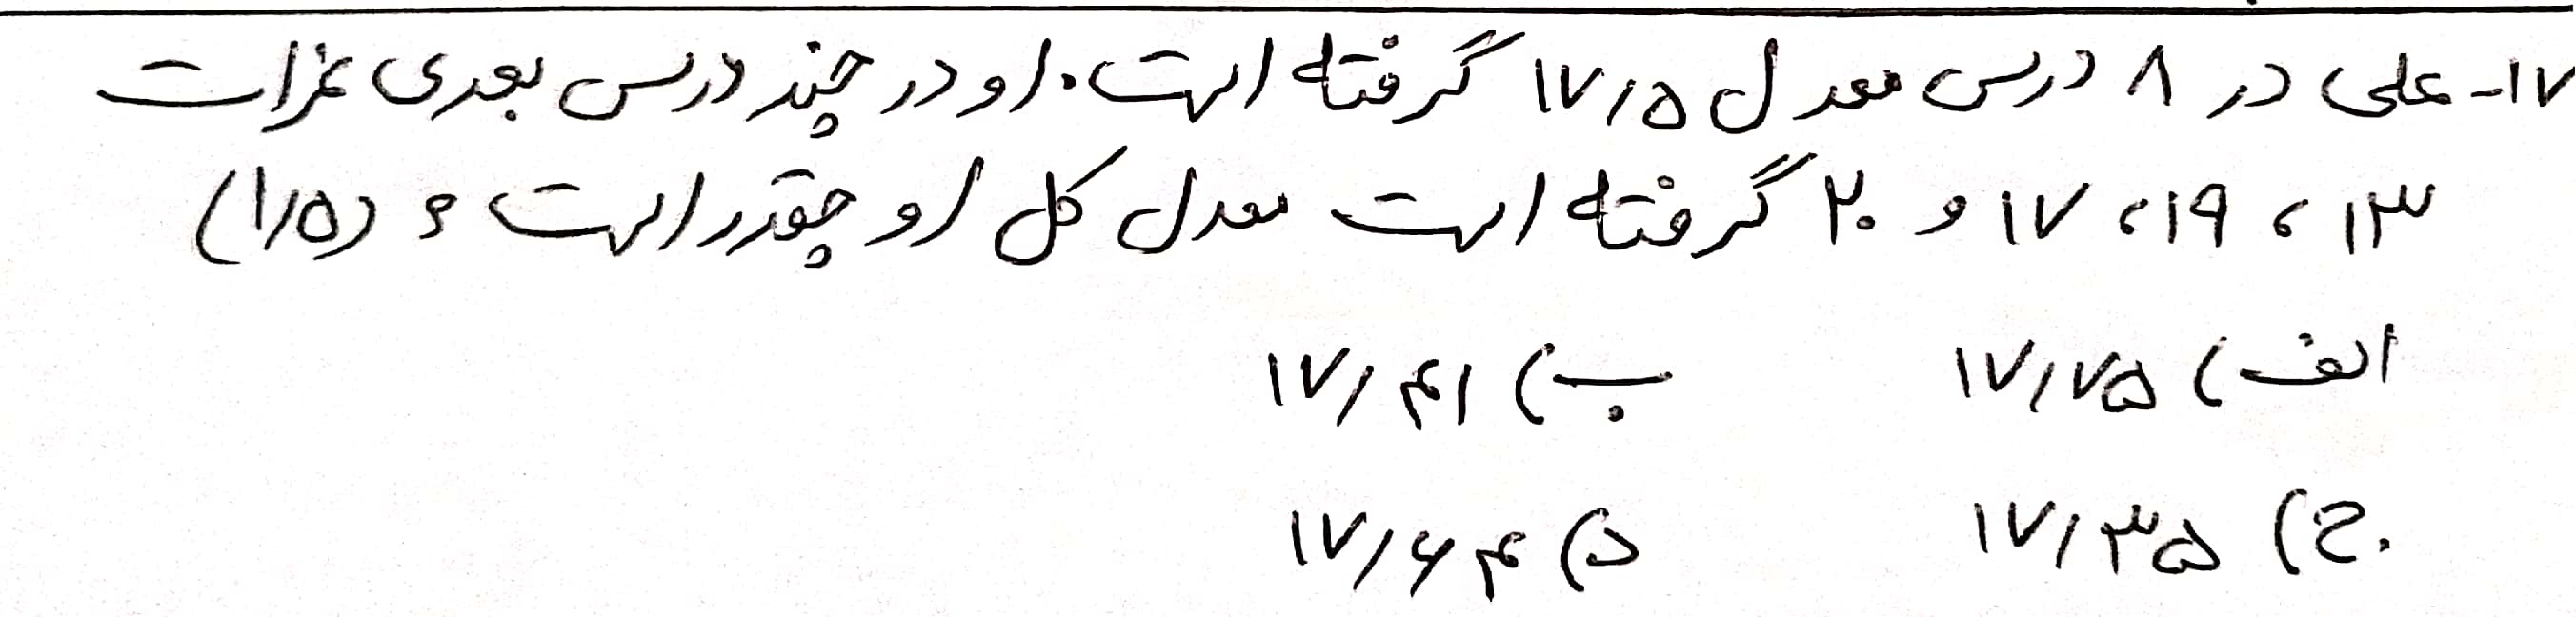 ۱۷- علی در ۸ درس معدل ۱۷٫۵ گرفته است. او در چند درس بعدی نمرات
۱۳، ۱۹، ۱۷ و ۲۰ گرفته است معدل کل او چقدر است؟ (۱٫۵)
الف) ۱۷٫۷۵ ب) ۱۷٫۴۱
ج) ۱۷٫۳۵ د) ۱۷٫۶۴